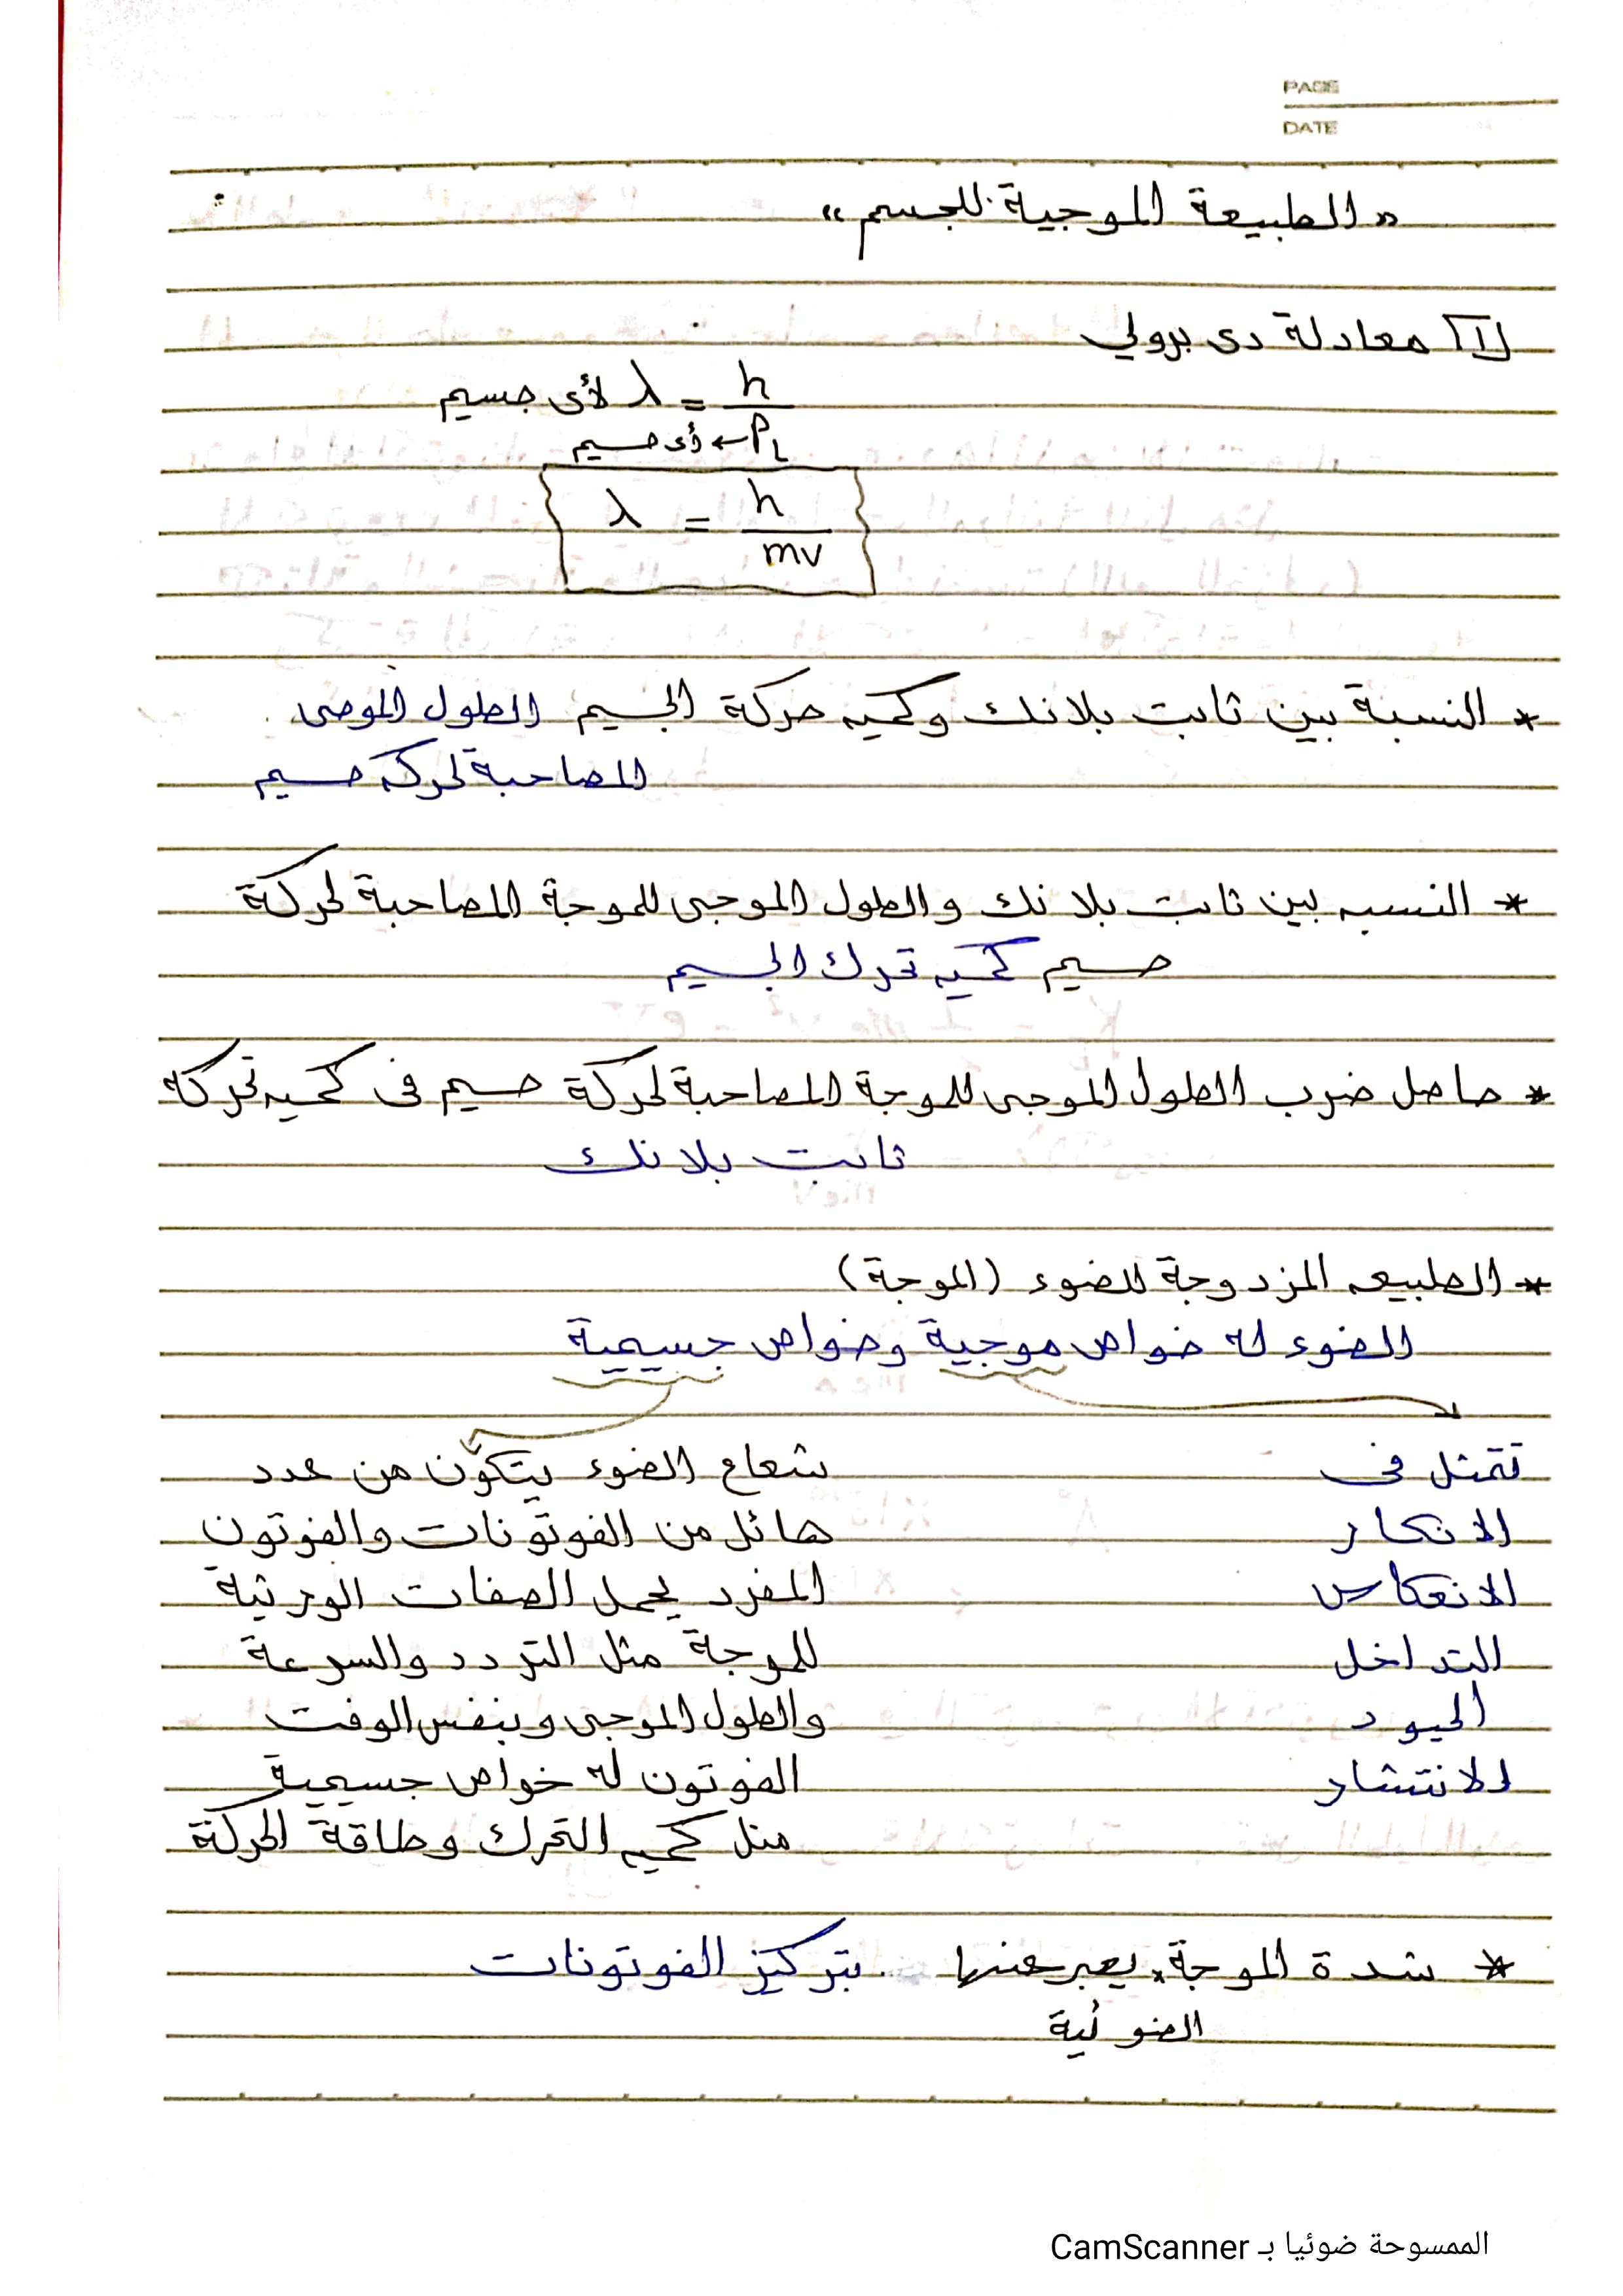 PAGE
DATE
« الطبيعة الموجية للجسم »
1 معادلة دى برولي
λ لأى جسيم = h / PL ← لأى جسيم
λ = h / mv
* النسبة بين ثابت بلانك وكميه حركة الجسيم الطول الموجى
المصاحبة لحركه جسيم
* النسبه بين ثابت بلانك والطول الموجى للموجة المصاحبة لحركة
جسيم كميه تحرك الجسيم
* حاصل ضرب الطول الموجى للموجة المصاحبة لحركة جسيم فى كميه تحركه
ثابت بلانك
* الطبيعه المزدوجة للضوء (الموجة)
الضوء له خواص موجية وخواص جسيمية
تتمثل فى
الانكسار
الانعكاس
التداخل
الحيود
الانتشار
شعاع الضوء يتكون من عدد
هائل من الفوتونات والفوتون
المفرد يحمل الصفات الورثية
للموجة مثل التردد والسرعة
والطول الموجى وبنفس الوقت
الفوتون له خواص جسيمية
مثل كميه التحرك وطاقة الحركة
* شدة الموجة يعبر عنها بتركيز الفوتونات
الضوئية
الممسوحة ضوئيا بـ CamScanner